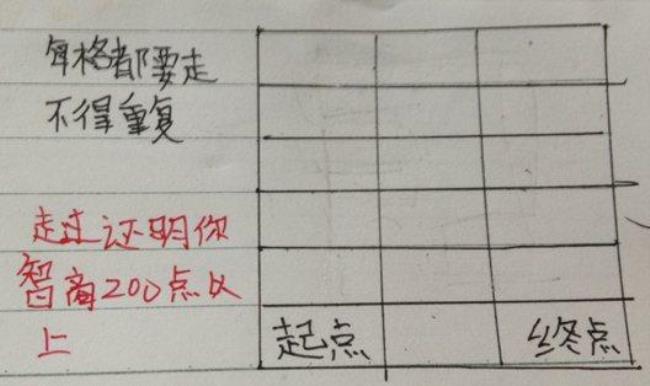 每格都要走
不得重复
走过证明你
智商200点以
上
起点
终点